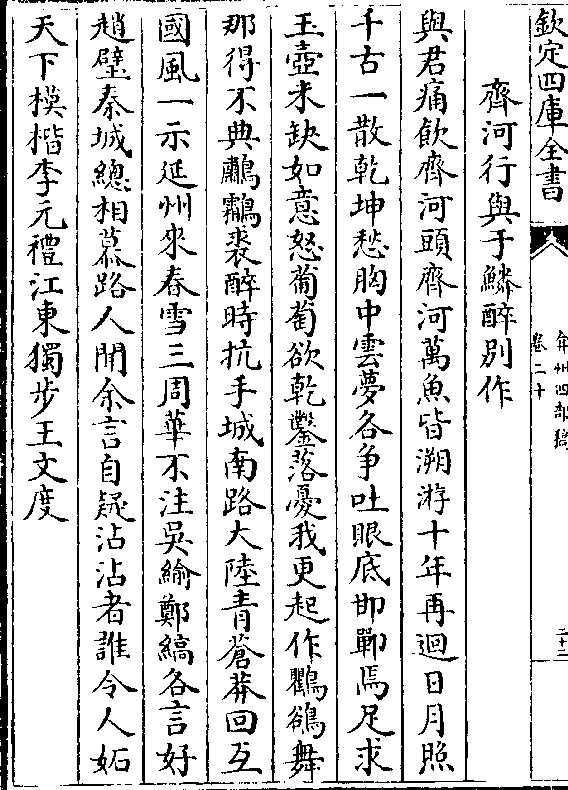 欽定四庫全書
弇州四部稿
卷二十
二十三
齊河行與于鱗醉別作
與君痛飲齊河頭齊河萬魚皆溯游十年再迴日月照
千古一散乾坤愁胸中雲夢各争吐眼底邯鄲焉足求
玉壺未缺如意怒葡萄欲乾鑿落憂我更起作鸜鵒舞
那得不典鸕鷫裘醉時抗手城南路大陸青蒼莽回互
國風一示延州來春雪三周華不注吳綸鄭縞各言好
趙璧秦城總相慕路人聞余言自疑沾沾者誰令人妬
天下模楷李元禮江東獨步王文度